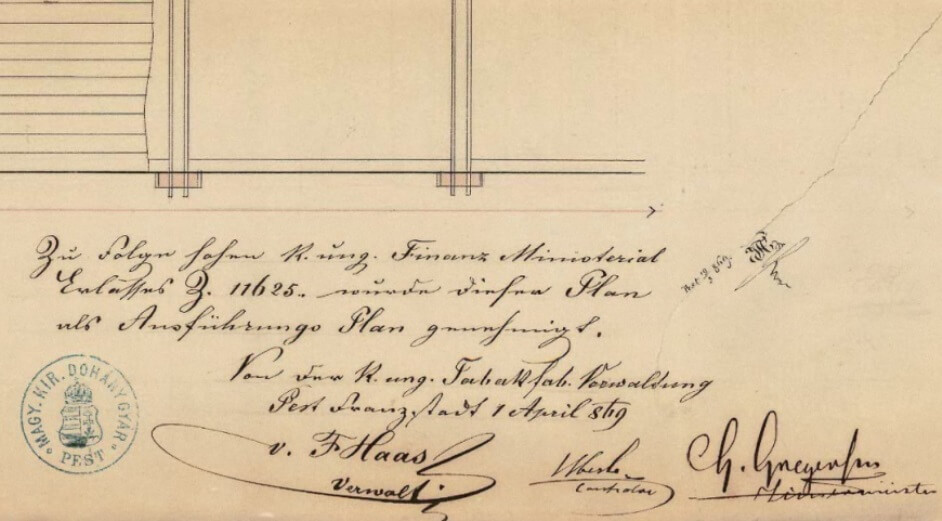 Zu Folge hohen K. ung. Finanz Ministerial
Erlasses Z. 11625. wurde dieser Plan
als Ausführungs Plan genehmigt.
Von der K. ung. Tabakfab. Verwaltung
Pest Franzstadt 1 April 869
v. F Haas
Verwalt.
Controlor
MAGY. KIR. DOHÁNY GYÁR
PEST